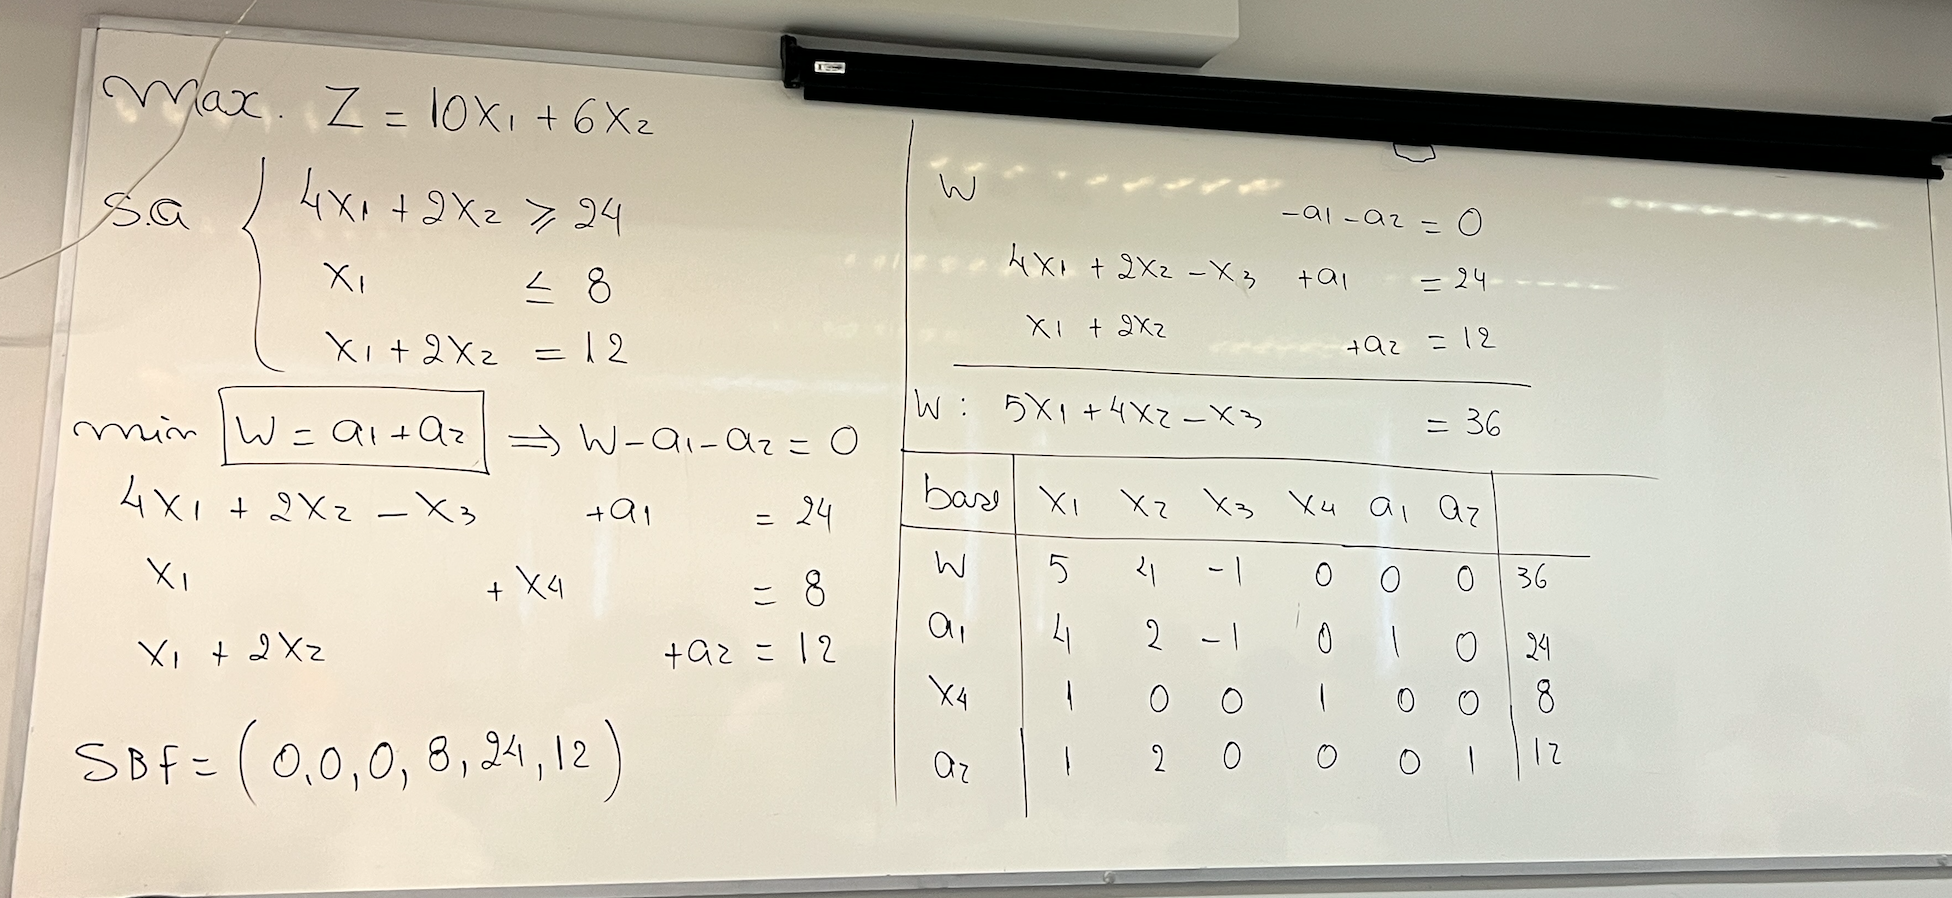 Max. Z = 10x₁ + 6x₂
s.a { 4x₁ + 2x₂ ≥ 24
x₁ ≤ 8
x₁ + 2x₂ = 12
min W = a₁ + a₂ ⇒ W - a₁ - a₂ = 0
4x₁ + 2x₂ - x₃ + a₁ = 24
x₁ + x₄ = 8
x₁ + 2x₂ + a₂ = 12
SBF = (0,0,0,8,24,12)
W - a₁ - a₂ = 0
4x₁ + 2x₂ - x₃ + a₁ = 24
x₁ + 2x₂ + a₂ = 12
W: 5x₁ + 4x₂ - x₃ = 36
base x₁ x₂ x₃ x₄ a₁ a₂
W 5 4 -1 0 0 0 36
a₁ 4 2 -1 0 1 0 24
x₄ 1 0 0 1 0 0 8
a₂ 1 2 0 0 0 1 12